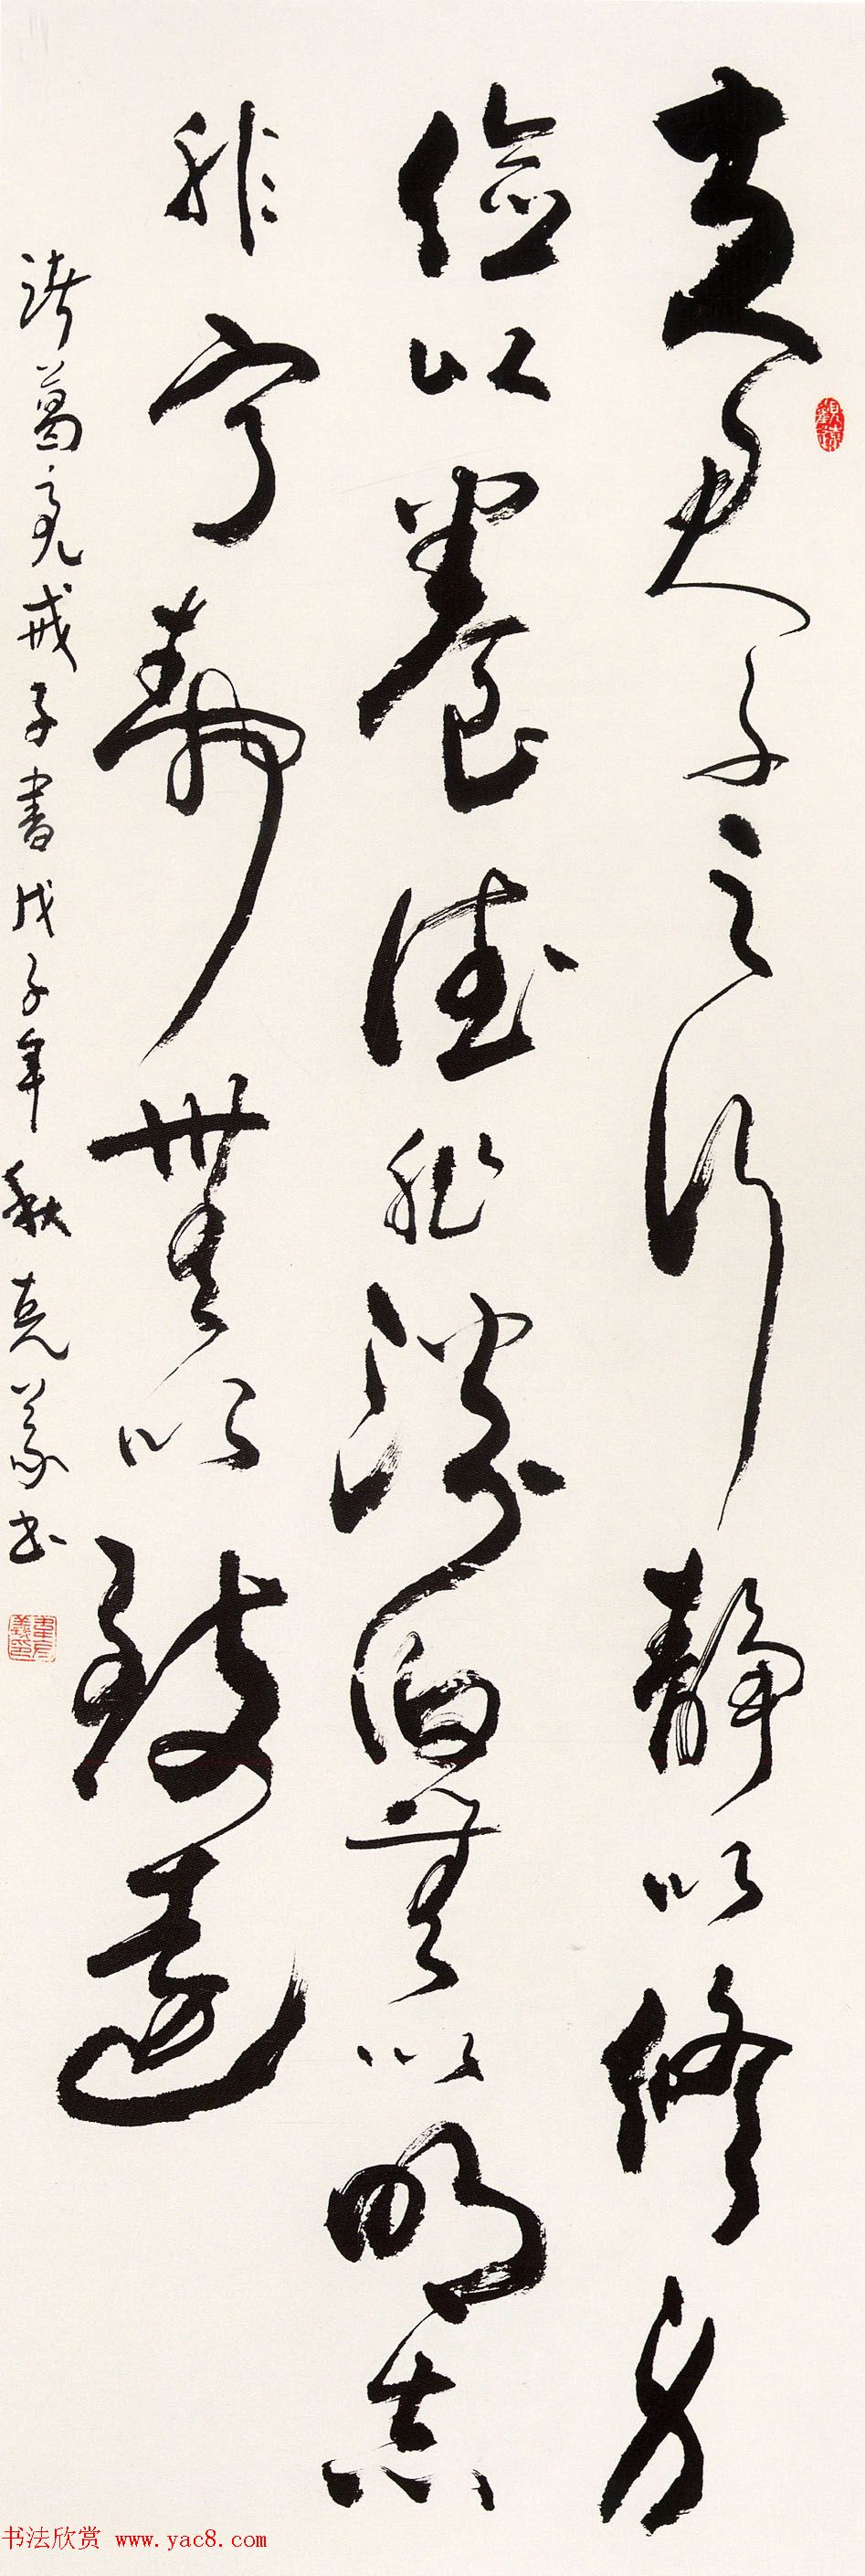 夫君子之行静以修身
儉以養德非澹泊無以明志
非宁静無以致遠
诸葛亮戒子書戊子年秋克義书
书法欣赏 www.yac8.com